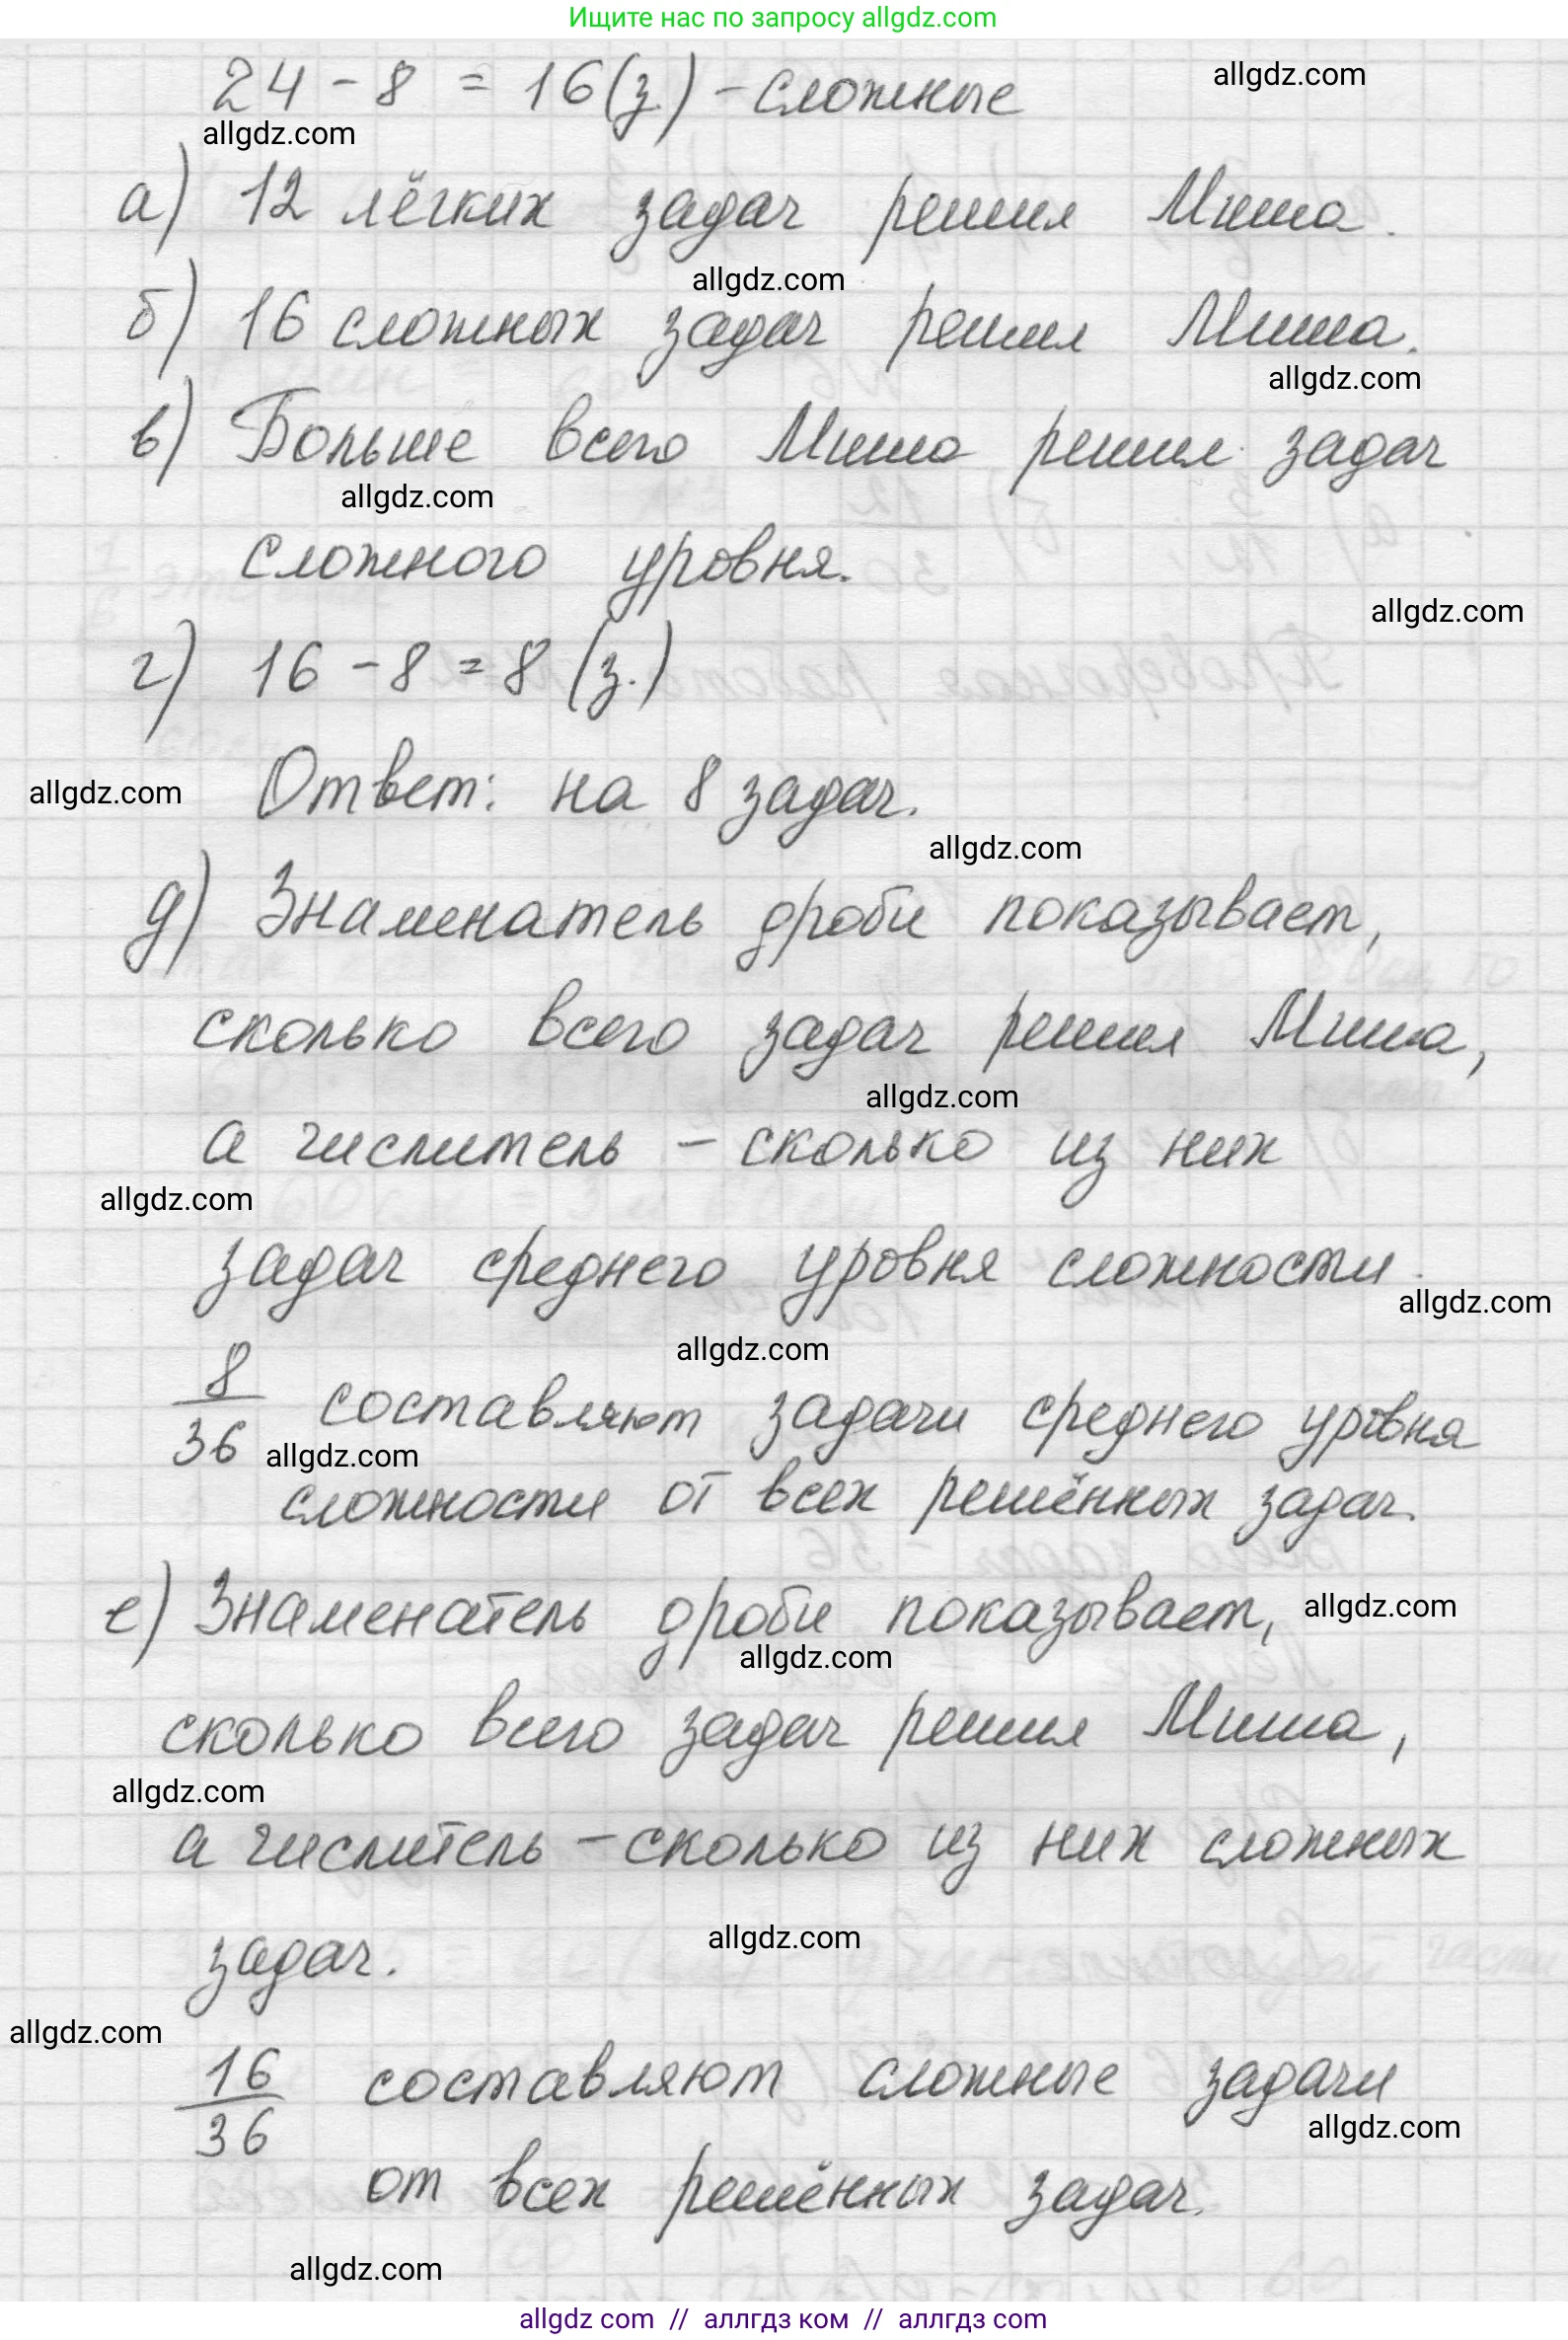 Ищите нас по запросу allgdz.com
24 - 8 = 16 (з.) - сложные
allgdz.com
allgdz.com
а) 12 лёгких задач решил Миша.
allgdz.com
б) 16 сложных задач решил Миша.
allgdz.com
в) Больше всего Миша решил задач
allgdz.com
сложного уровня.
allgdz.com
г) 16 - 8 = 8 (з.)
Ответ: на 8 задач.
allgdz.com
allgdz.com
д) Знаменатель дроби показывает,
сколько всего задач решил Миша,
allgdz.com
а числитель - сколько из них
allgdz.com
задач среднего уровня сложности.
allgdz.com
allgdz.com
8/36 составляют задачи среднего уровня
allgdz.com
сложности от всех решённых задач.
е) Знаменатель дроби показывает,
allgdz.com
allgdz.com
сколько всего задач решил Миша,
allgdz.com
а числитель - сколько из них сложных
allgdz.com
задач.
allgdz.com
16/36 составляют сложные задачи
allgdz.com
от всех решённых задач.
allgdz.com
allgdz com // аллгдз ком // аллгдз com